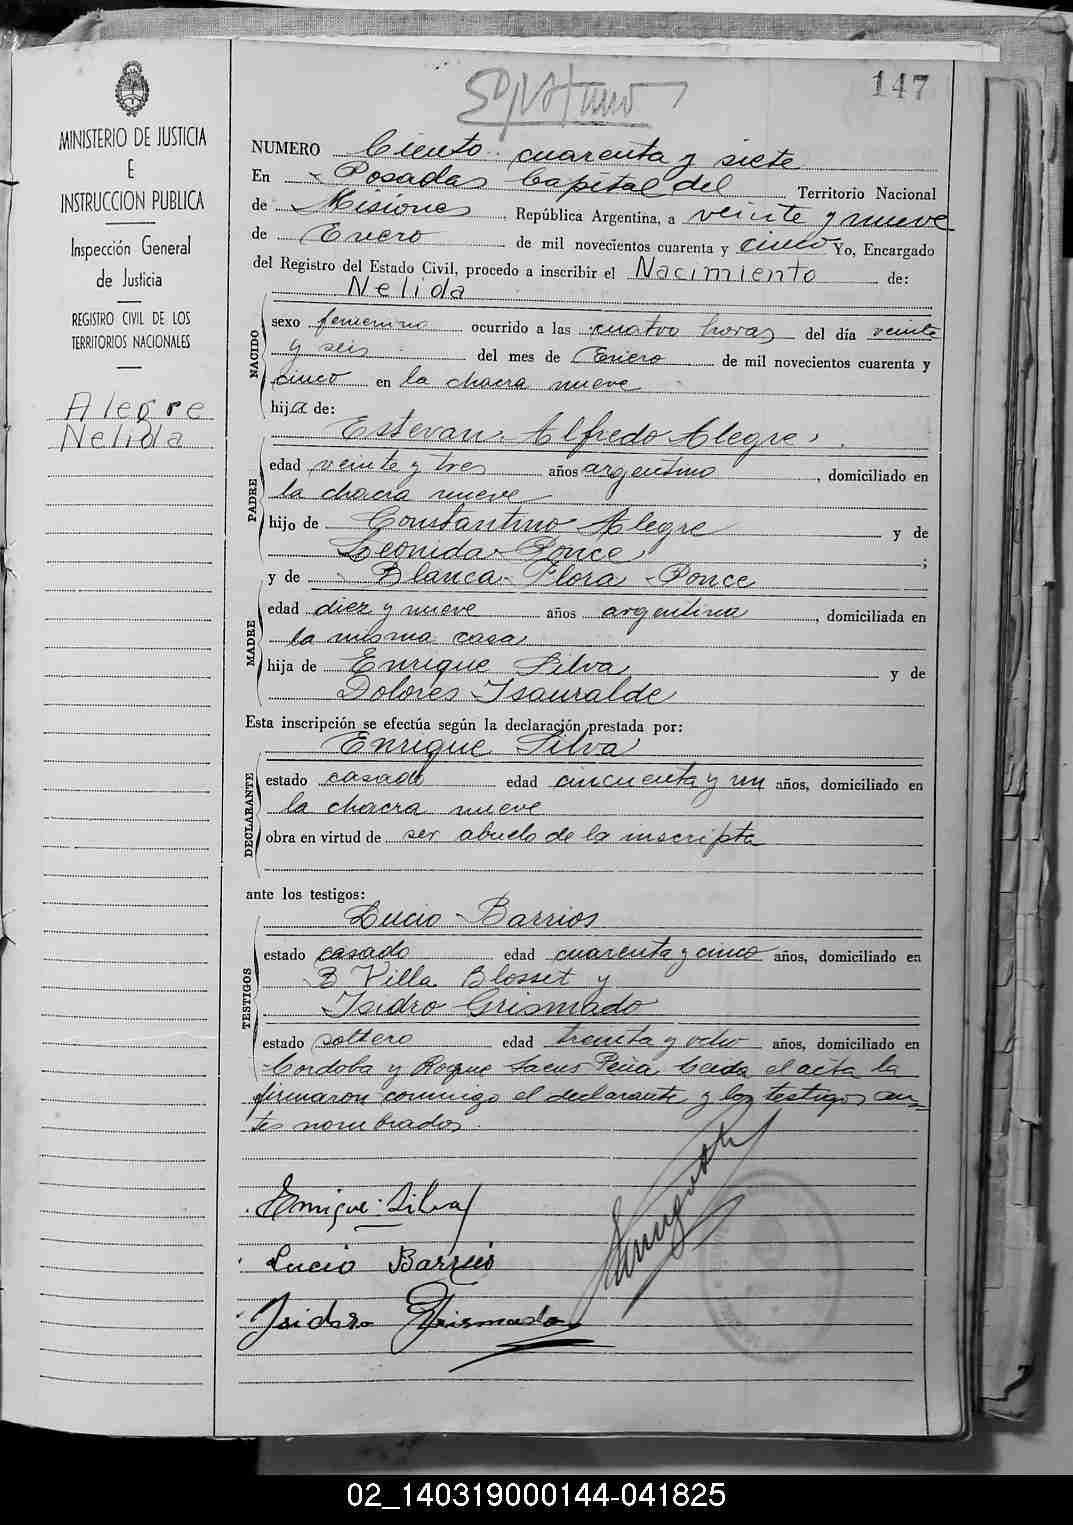 147
MINISTERIO DE JUSTICIA
E
INSTRUCCION PUBLICA
Inspección General
de Justicia
REGISTRO CIVIL DE LOS
TERRITORIOS NACIONALES
Alegre
Nelida
NUMERO Ciento cuarenta y siete
En Posadas Capital del Territorio Nacional
de Misiones, República Argentina, a veinte y nueve
de Enero de mil novecientos cuarenta y cinco Yo, Encargado
del Registro del Estado Civil, procedo a inscribir el Nacimiento de:
Nelida
NACIDO
sexo femenino ocurrido a las cuatro horas del día veinte
y seis del mes de Enero de mil novecientos cuarenta y
cinco en la chacra nueve
hija de:
Estevan Alfredo Alegre
PADRE
edad veinte y tres años argentino, domiciliado en
la chacra nueve
hijo de Constantino Alegre y de
Leonida Ponce;
y de Blanca Flora Ponce
MADRE
edad diez y nueve años argentina, domiciliada en
la misma casa
hija de Enrique Silva y de
Dolores Isauralde
Esta inscripción se efectúa según la declaración prestada por:
Enrique Silva
DECLARANTE
estado casado edad cincuenta y un años, domiciliado en
la chacra nueve
obra en virtud de ser abuelo de la inscripta
ante los testigos:
Lucio Barrios
TESTIGOS
estado casado edad cuarenta y cinco años, domiciliado en
B Villa Blosset y
Isidro Grismado
estado soltero edad treinta y ocho años, domiciliado en
Cordoba y Roque Saens Peña Leida el acta la
firmaron conmigo el declarante y los testigos an=
tes nombrados.
Enrique Silva
Lucio Barrios
Isidro Grismado
02_140319000144-041825